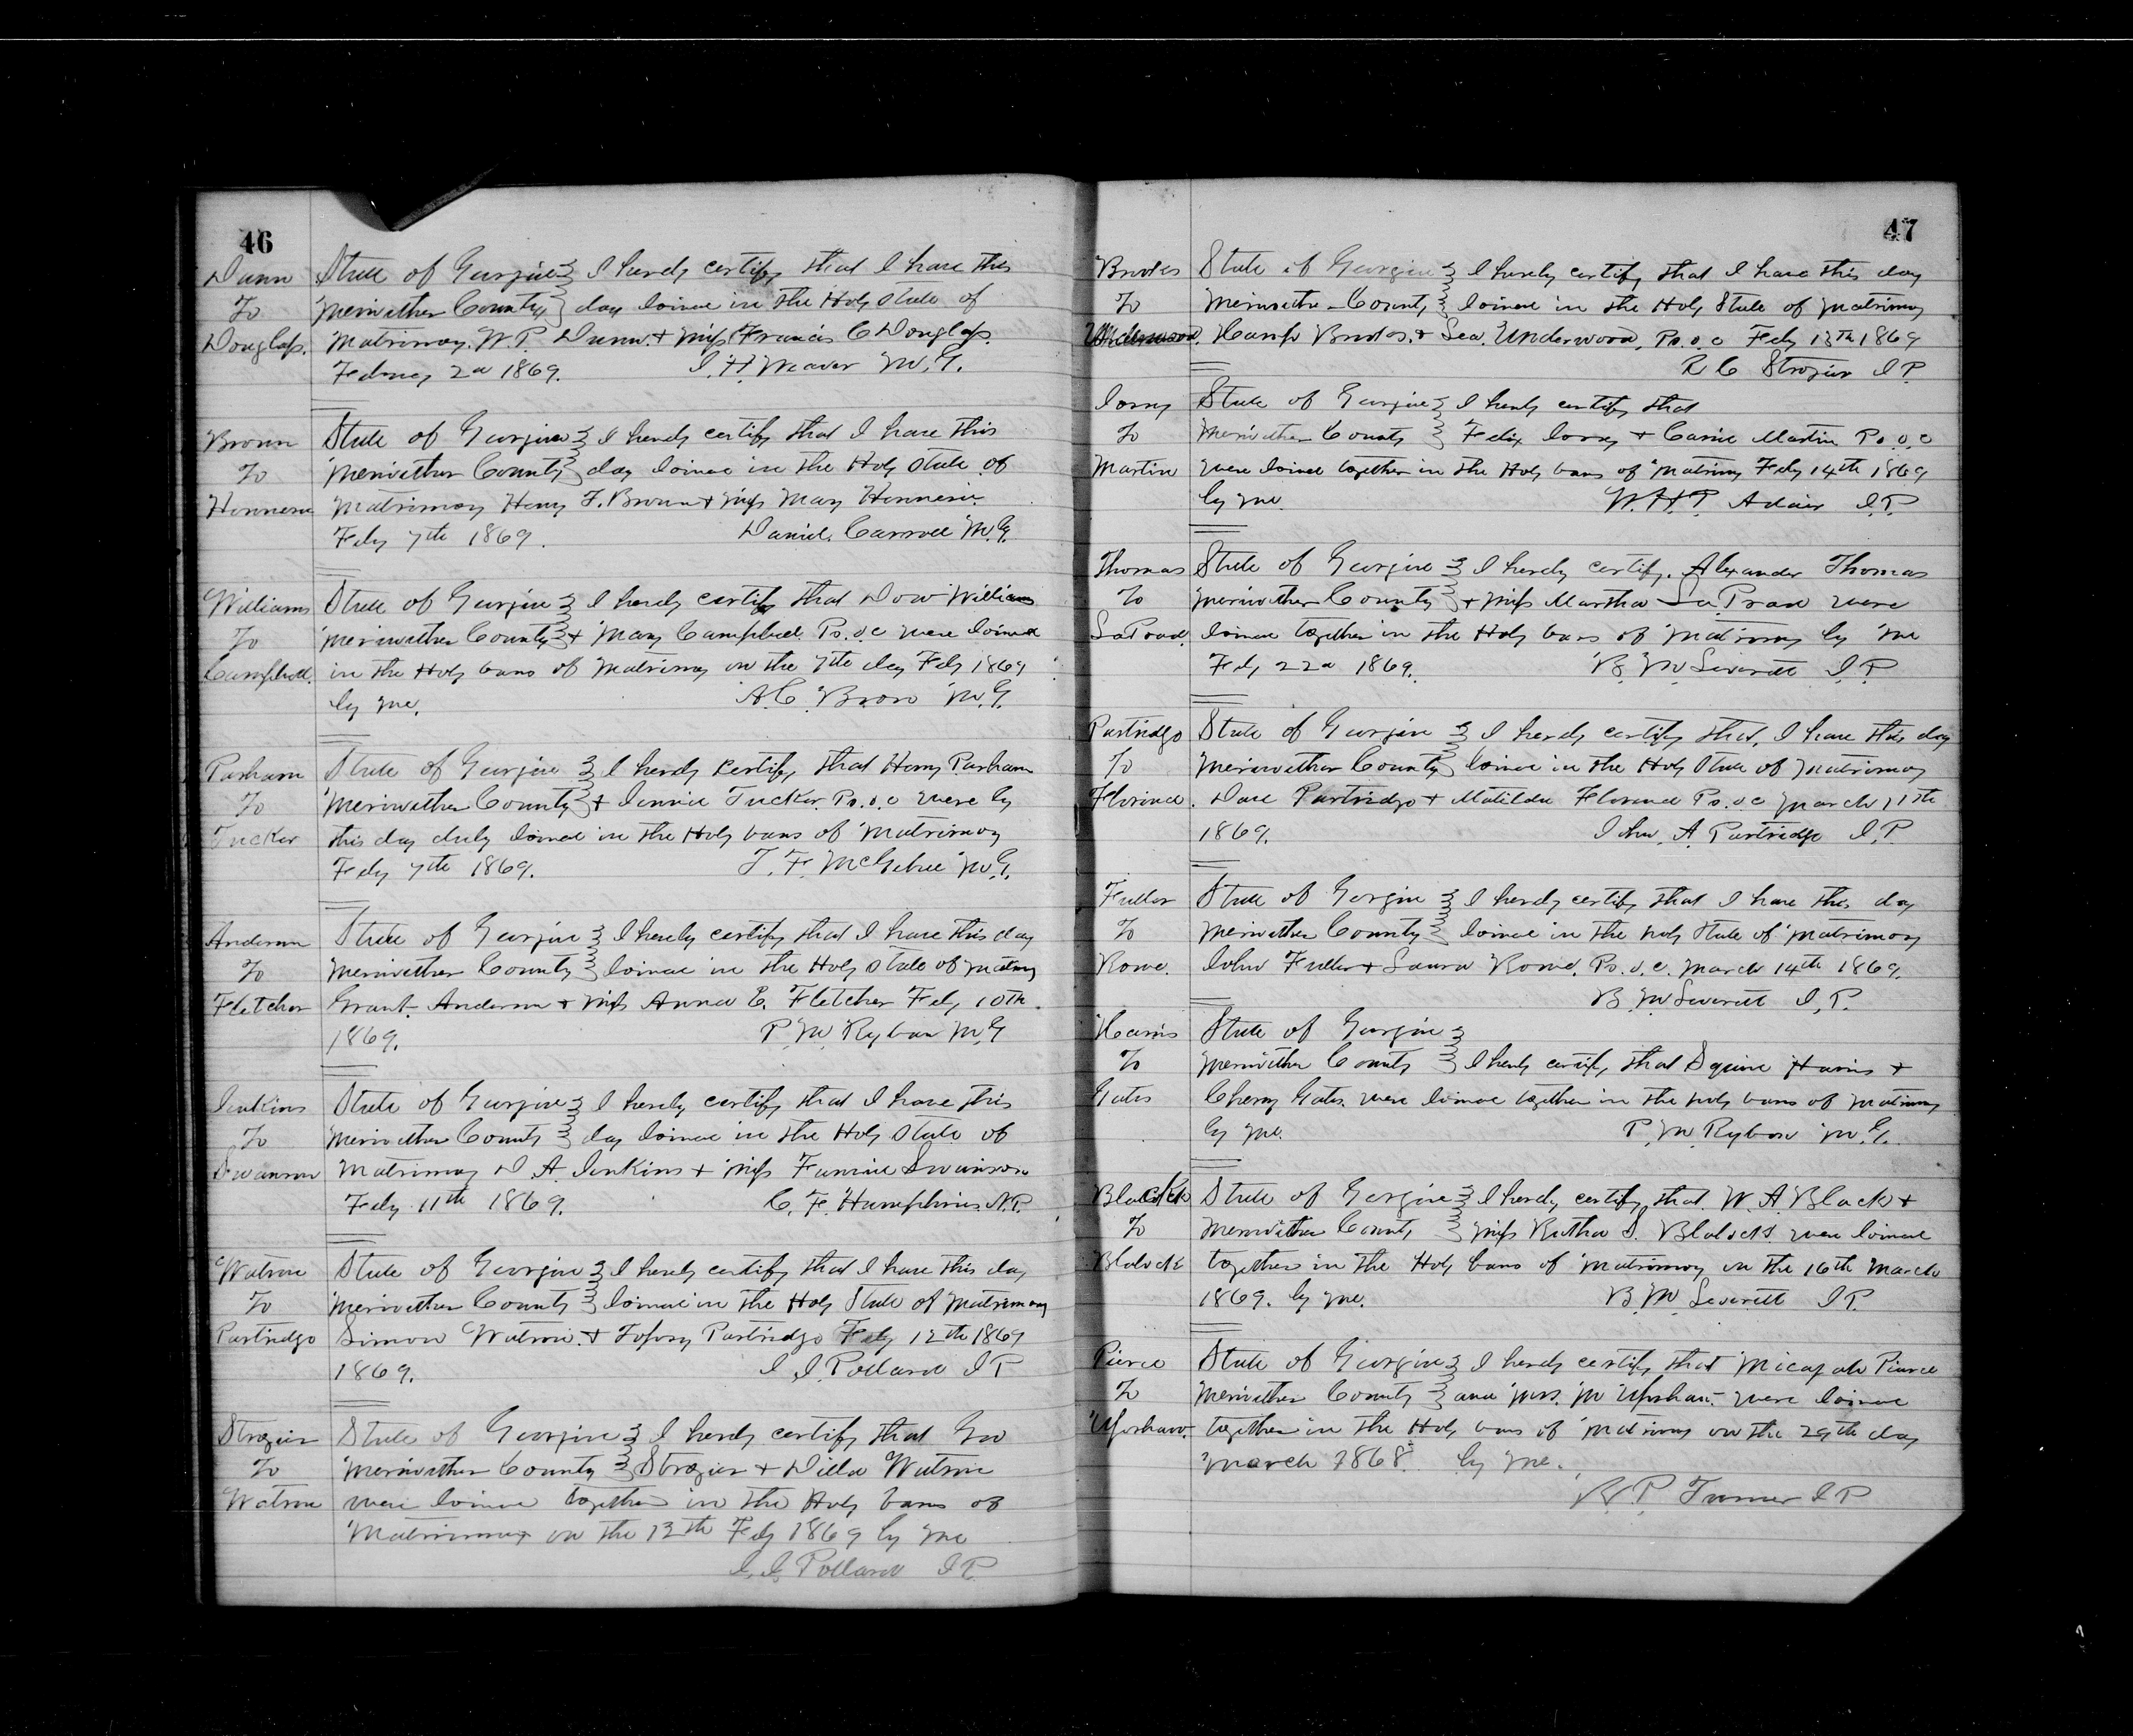 46
Dunn State of Georgia } I hereby certify that I have this
To Meriwether County } day Joined in the Holy State of
Douglass. Matrimony. W. P. Dunn & Miss Francis C Douglass.
February 2d 1869. J. H. Weaver M. G.
Brown State of Georgia } I hereby certify that I have this
To Meriwether County } day Joined in the Holy State of
Matrimony Henry F. Brown & Miss Mary
Feby 7th 1869. Daniel Carroll M. G.
Williams State of Georgia } I hereby certify that Dow Williams
To Meriwether County } & Mary Campbell Ps. o. c were Joined
Campbell. in the Holy bans of Matrimony on the 7th day Feby 1869
by me. A. C. M. G.
Parham State of Georgia } I hereby certify that Henry Parham
To Meriwether County } & Jennie Tucker Ps. o. c were by
Tucker this day duly Joined in the Holy bans of Matrimony
Feby 7th 1869. T. F. McGehee M. G.
Anderson State of Georgia } I hereby certify that I have this day
To Meriwether County } Joined in the Holy State of Matmy
Fletcher Grant Anderson & Miss Anna E. Fletcher Feby 10th
1869. P. M. Ryburn M. G
Jenkins State of Georgia } I hereby certify that I have this
To Meriwether County } day Joined in the Holy State of
Swanson Matrimony D A. Jenkins & Miss Fannie Swanson
Feby 11th 1869. C. F. Humphries N. P.
Watson State of Georgia } I hereby certify that I have this day
To Meriwether County } Joined in the Holy State of Matrimony
Partridge Simon Watson & Partridge Feby 12th 1869
1869. J. J. Pollard J P
Strozier State of Georgia } I hereby certify that Geo
To Meriwether County } Strozier & Dilla Watson
Watson were Joined together in the Holy bans of
Matrimony on the 13th Feby 1869 by me
J. J. Pollard J P.
47
State of Georgia } I hereby certify that I have this day
To Meriwether County } Joined in the Holy State of Matrimony
Underwood. & Underwood, Ps. o. c Feby 13th 1869
R C Strozier J P.
State of Georgia } I hereby certify that
To Meriwether County } Felix & Carrie Martin Ps. o. c
Martin were Joined together in the Holy bans of Matrimony Feby 14th 1869
by me. W. H. P. Adair J. P.
Thomas State of Georgia } I hereby certify. Alexander Thomas
To Meriwether County } & Miss Martha La Prad were
LaPrad. Joined together in the Holy bans of Matrimony by me
Feby 22d 1869. B. M Leverett J. P
Partridge State of Georgia } I hereby certify that, I have this day
To Meriwether County } Joined in the Holy State of Matrimony
Partridge & Matilda Ps. o c March 11th
1869. John A. Partridge J. P.
Fuller State of Gorgia } I hereby certify that I have this day
To Meriwether County } Joined in the holy State of Matrimony
Rowe. John Fuller & Laura Rowe. Ps. o. c. March 14th 1869.
B. M Leverett J. P.
Harris State of Georgia }
To Meriwether County } I hereby certify, that Squire Harris &
Gates Cherry Gates. were Joined together in the holy bans of Matrimony
by me. P. M Ryburn M. G.
Black State of Gorgia } I hereby certify, that. W. A. Black &
To Meriwether County } Miss S. Blalock were Joined
Blalock together in the Holy bans of Matrimony on the 16th March
1869. by me. B. M. Leverett J P.
Pierce State of Georgia } I hereby certify that Micajah Pierce
To Meriwether County } and Mrs. M Upshaw were Joined
Upshaw together in the Holy bans of Matrimony on the 29th day
March 1868. by me.
R. P. Turner J P